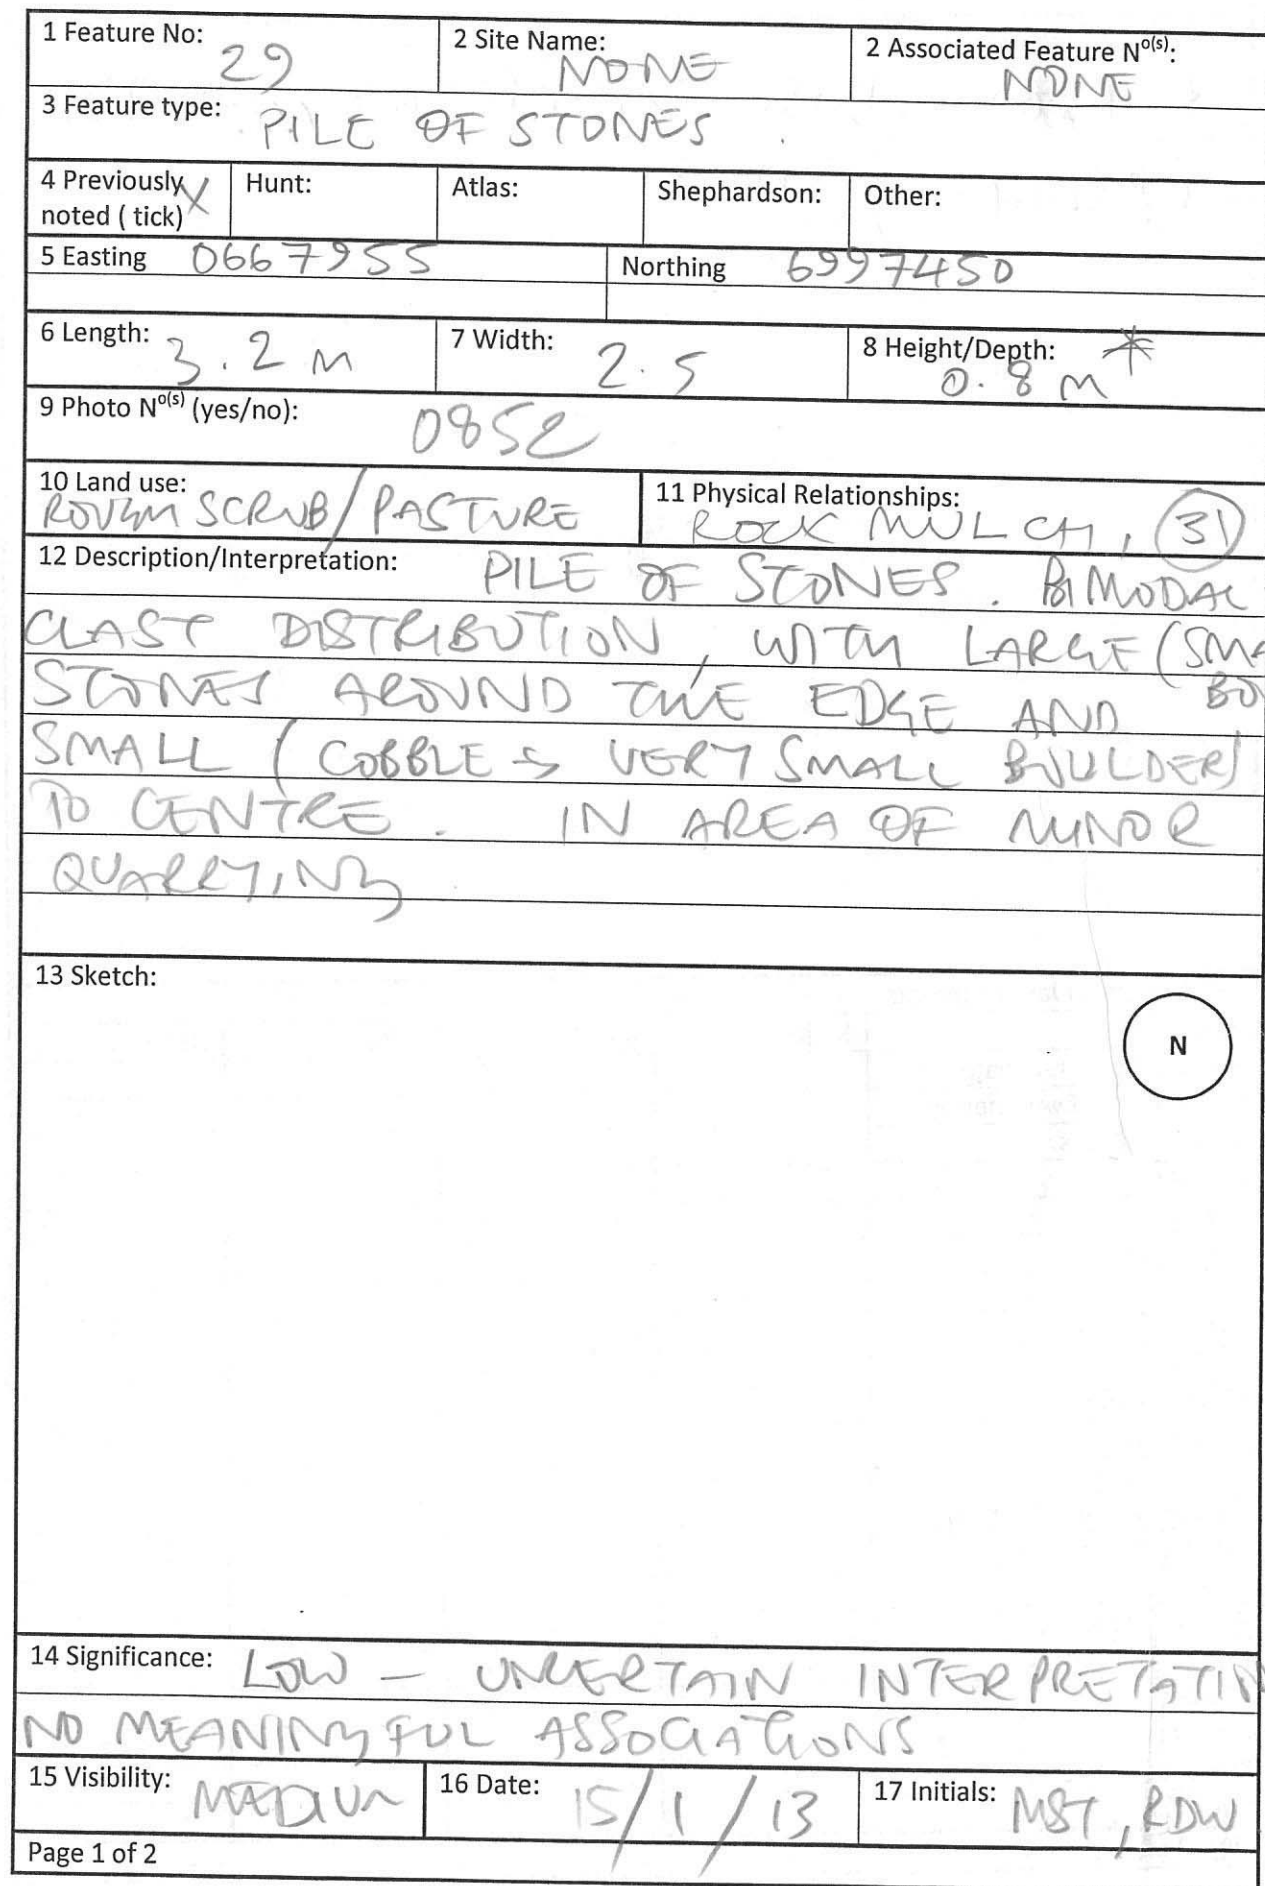 1 Feature No: 29 2 Site Name: NONE 2 Associated Feature No(s): NONE
3 Feature type: PILE OF STONES .
4 Previously noted ( tick) X Hunt: Atlas: Shephardson: Other:
5 Easting 0667955 Northing 6997450
6 Length: 3.2 M 7 Width: 2.5 8 Height/Depth: 0.8 M *
9 Photo No(s) (yes/no): 0852
10 Land use: ROUGH SCRUB/PASTURE 11 Physical Relationships: ROCK MULCH, 31
12 Description/Interpretation: PILE OF STONES. BIMODAL
CLAST DISTRIBUTION, WITH LARGE (SMA
STONES AROUND THE EDGE AND BO
SMALL (COBBLE → VERY SMALL BOULDER)
TO CENTRE. IN AREA OF MINOR
QUARRYING
13 Sketch:
N
14 Significance: LOW - UNCERTAIN INTERPRETATIN
NO MEANINGFUL ASSOCIATIONS
15 Visibility: MEDIUM 16 Date: 15/1/13 17 Initials: MST, RDW
Page 1 of 2